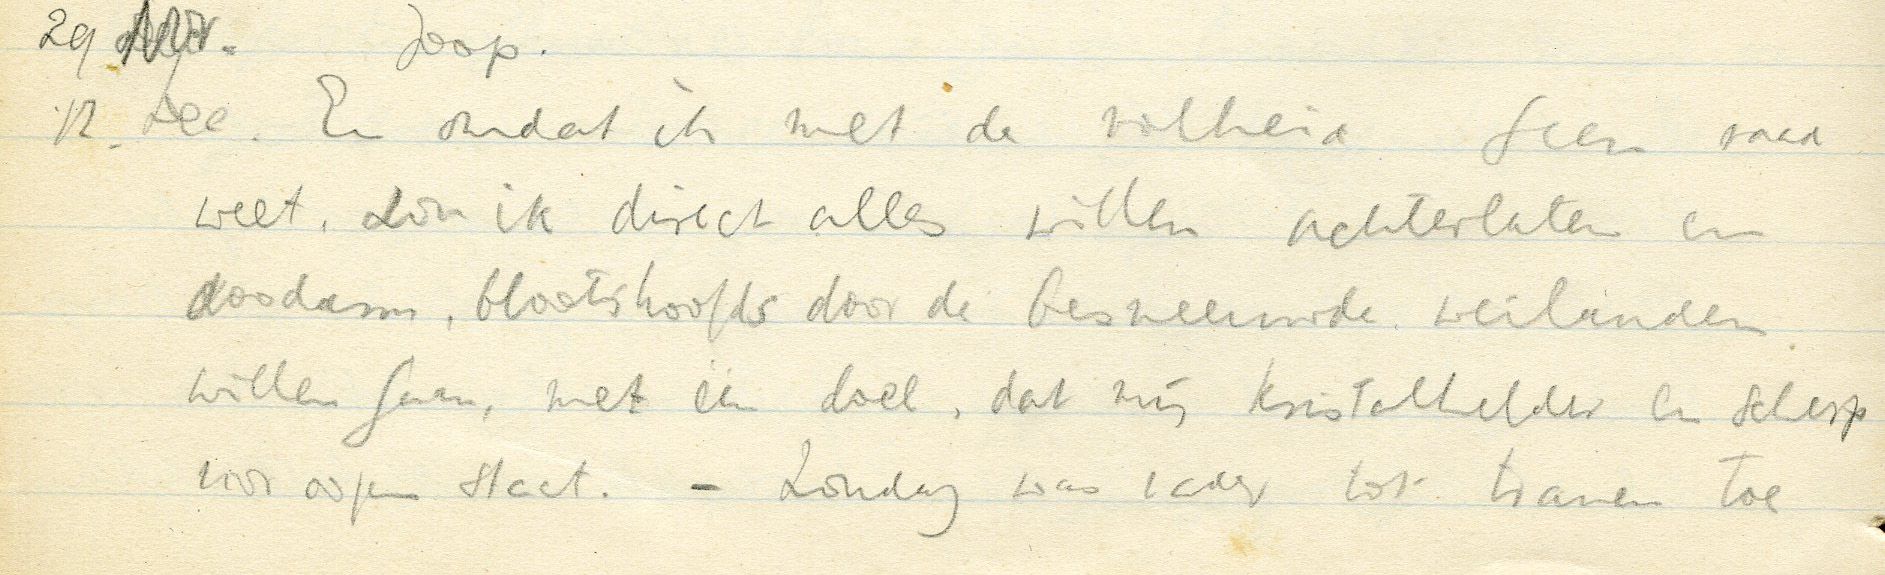 29 Nov. Joop.
12. Dec. En omdat ik met de volheid geen raad
weet, zou ik direct alles willen achterlaten en
doodarm, blootshoofds door de besneeuwde weilanden
willen gaan, met één doel, dat mij kristalhelder en scherp
voor oogen staat. – Zondag was vader tot tranen toe